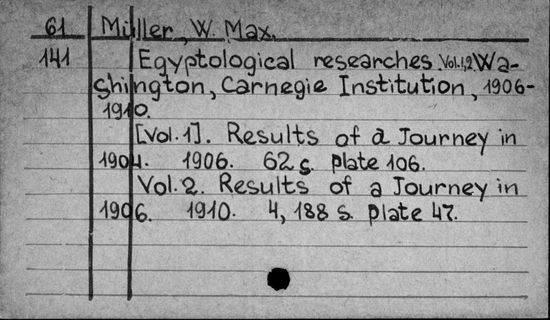 61 Müller, W. Max.
141 Egyptological researches. Vol.1,2. Wa-
shington, Carnegie Institution, 1906-
1910.
[Vol. 1]. Results of a Journey in
1904. 1906. 62 s. plate 106.
Vol. 2. Results of a Journey in
1906. 1910. 4, 188 s. plate 47.